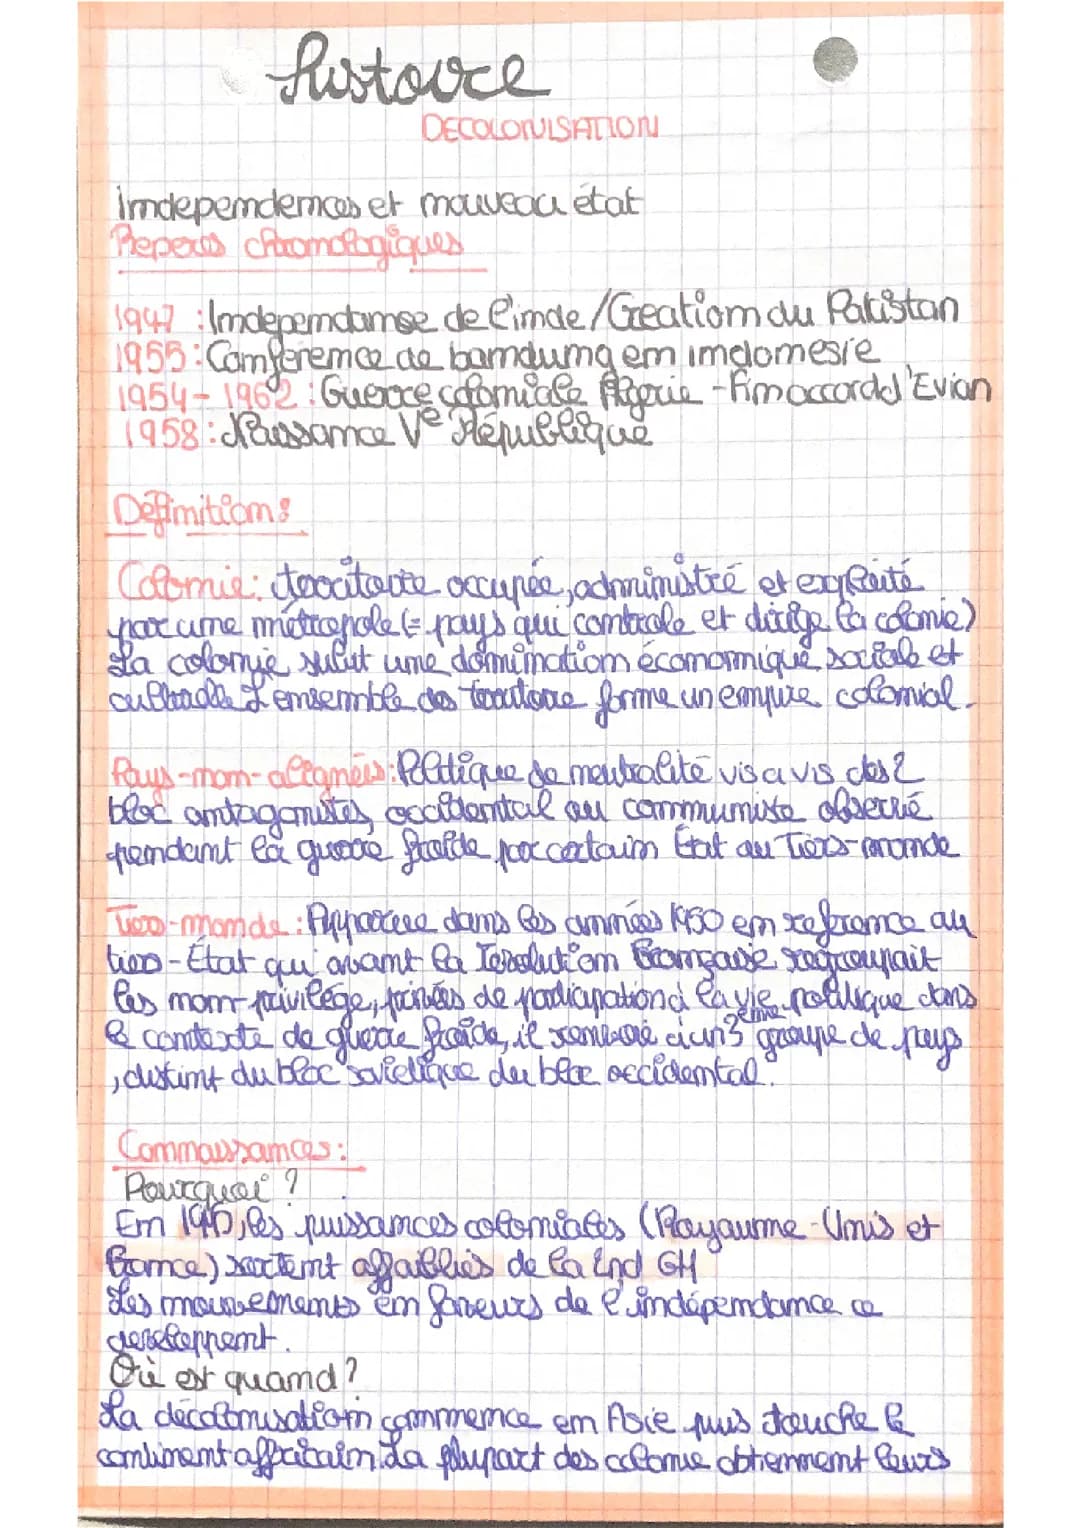 histoire
DECOLONISATION
Independences et nouveau état
Reperes chronologiques
1947 : Independanse de l'inde / Creation du Pakistan
1955 : Conference de bandung en indonesie
1954-1962 : Guerre coloniale Algerie - fin accord d'Evian
1958 : Naissance Ve République
Définition :
Colonie : territoire occupée, administré et exploité
par une métropole (= pays qui controle et dirige la colonie)
La colonie subit une domination économique sociale et
culturelle L'ensemble des territoire forme un empire colonial.
Pays-non-alignés : Politique de neutralité vis a vis des 2
bloc antagonistes, occidental ou communiste observé
pendant la guerre froide par certain État du Tiers-monde
Tiers-monde : Apparue dans les années 1950 en reference au
tiers-État qui avant la Révolution Française regroupait
les non-privilège, privées de participation à la vie politique dans
le contexte de guerre froide, il renvoie à un 3ème groupe de pays
, distint du bloc soviétique du bloc occidental.
Connaissances :
Pourquoi ?
En 1945, les puissances coloniales (Royaume-Unis et
France) sortent affaiblies de la 2nd GM
Les mouvements en faveurs de l'indépendance ce
developpent.
Où est quand ?
La décolonisation commence en Asie puis touche le
continent affricain. La plupart des colonie obtiennent leurs